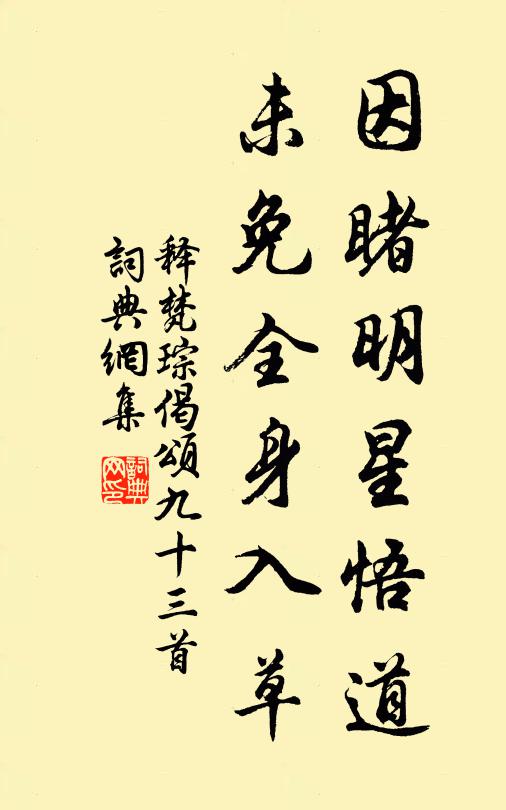 因睹明星悟道
未免全身入草
释梵琮偈頌九十三首
詞典網集
詞典
网印